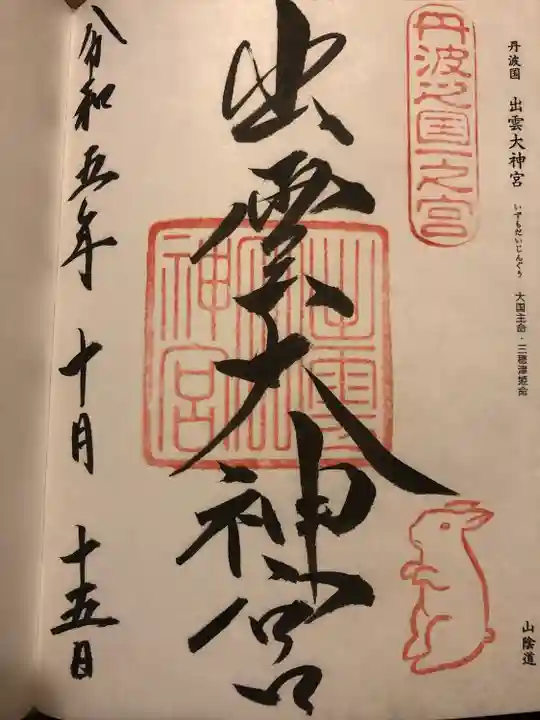 丹波国 出雲大神宮 いずもだいじんぐう 大国主命・三穂津姫命
山陰道
丹波之国一之宮
出雲大神宮
出雲大神宮
令和五年 十月 十五日